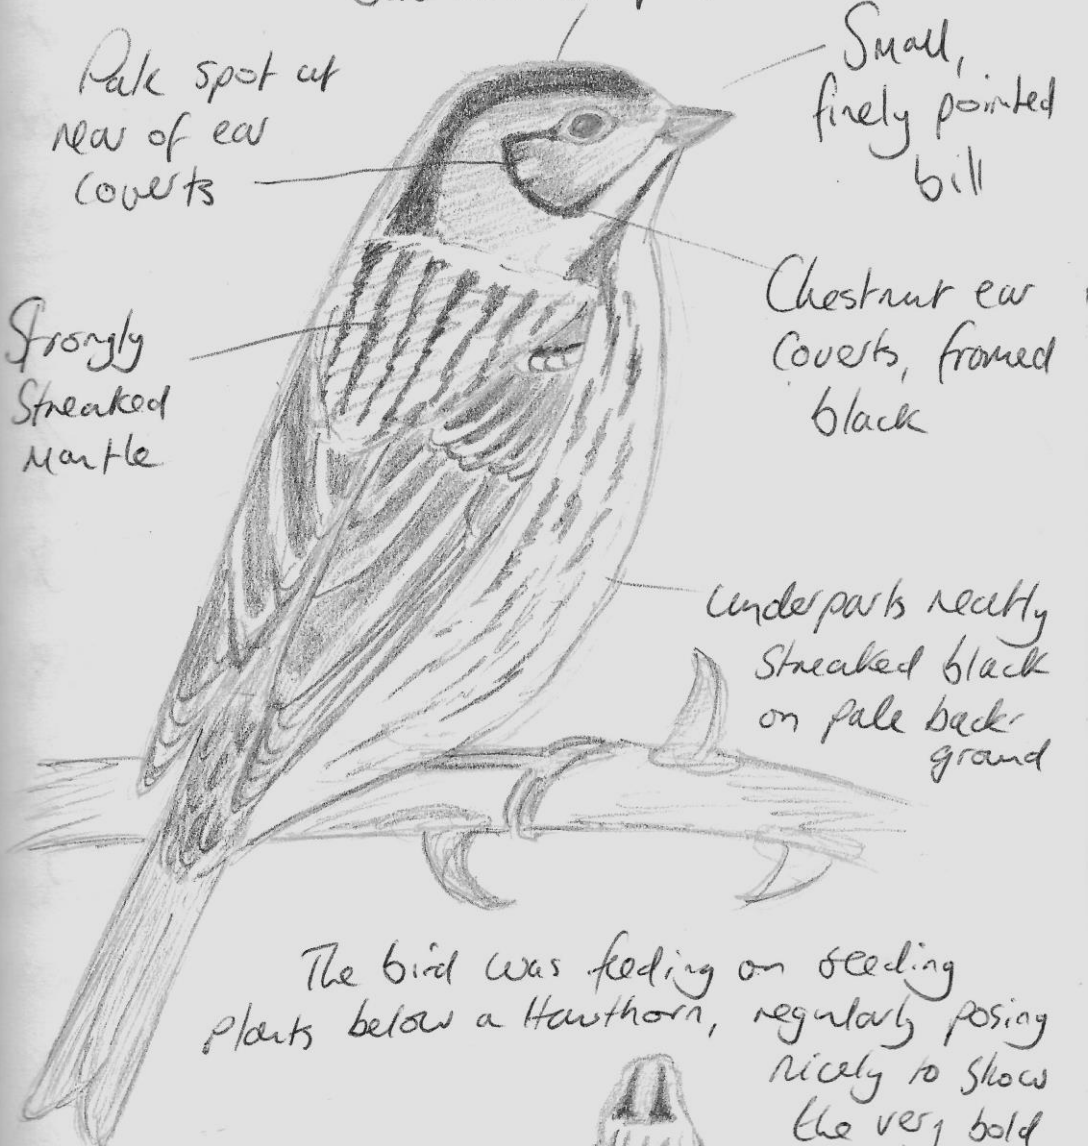 Pale spot at
rear of ear
coverts
Small,
finely pointed
bill
Chestnut ear
coverts, framed
black
Strongly
streaked
mantle
Underparts neatly
streaked black
on pale back-
ground
The bird was feeding on seeding
plants below a Hawthorn, regularly posing
nicely to show
the very bold